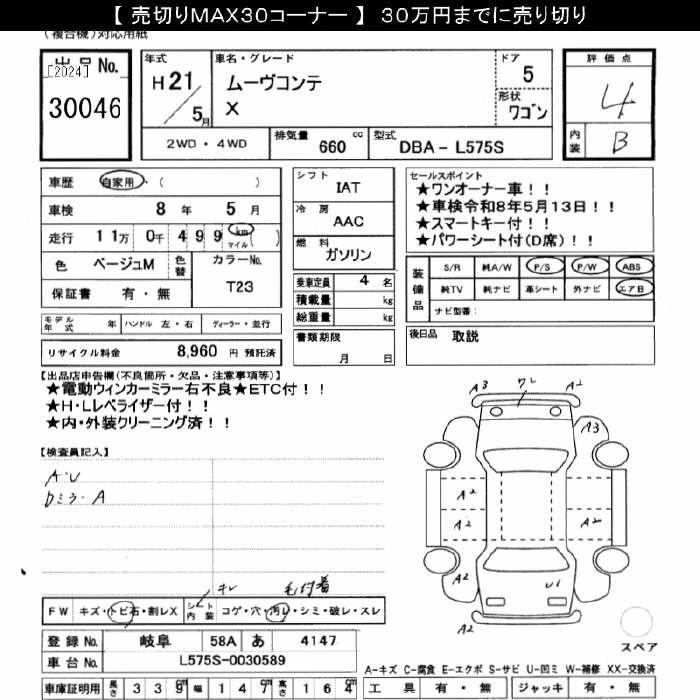 【 売切りMAX30コーナー 】 30万円までに売り切り
(複合機)対応用紙
出品No.
[2024]
30046
年式
H21
5月
車名・グレード
ムーヴコンテ
X
ドア
5
形状
ワゴン
評価点
4
内装
B
2WD・4WD
排気量
660
cc
型式
DBA-L575S
車歴
自家用・( )
車検
8年 5月
走行
11万 0千 499 km マイル ( )
色
ベージュM
色替
カラーNo.
T23
保証書 有・無
シフト
IAT
冷房
AAC
燃料
ガソリン
乗車定員 4 名
積載量 kg
総重量 kg
セールスポイント
★ワンオーナー車!!
★車検令和8年5月13日!!
★スマートキー付!!
★パワーシート付(D席)!!
装備品
S/R 純A/W P/S P/W ABS
純TV 純ナビ 革シート 外ナビ エアB
ナビ型番:
モデル年式 年
ハンドル 左・右
ディーラー・並行
リサイクル料金 8,960 円 預託済
書類期限
月 日
後日品 取説
【出品店申告欄(不良箇所・欠品・注意事項等)】
★電動ウィンカーミラー右不良★ETC付!!
★H・Lレベライザー付!!
★内・外装クリーニング済!!
【検査員記入】
A・U
Dミラ-A
A3
ワレ
A2
A3
A2
A2
A2
A2
A2
U1
A2
キレ
毛付着
FW キズ・トビ石・割レX
シート内装 コゲ・穴・汚レ・シミ・破レ・スレ
スペア
登録No. 岐阜 58A あ 4147
車台No. L575S-0030589
A-キズ C-腐食 E-エクボ S-サビ U-凹ミ W-補修 XX-交換済
車庫証明用 長さ 339 幅 147 高さ 164 cm
工具 有・無 ジャッキ 有・無